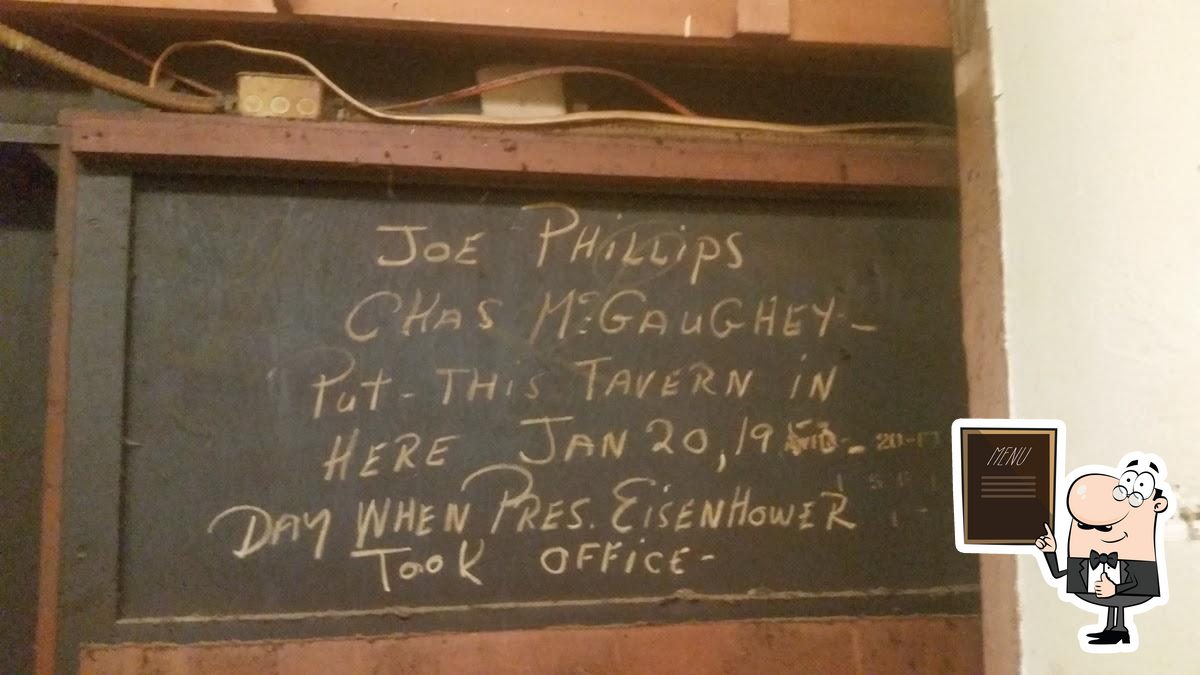 JOE PHILLIPS
CHAS McGAUGHEY-
PUT-THIS TAVERN IN
HERE JAN 20, 19
DAY WHEN PRES. EISENHOWER
TOOK OFFICE-
MENU